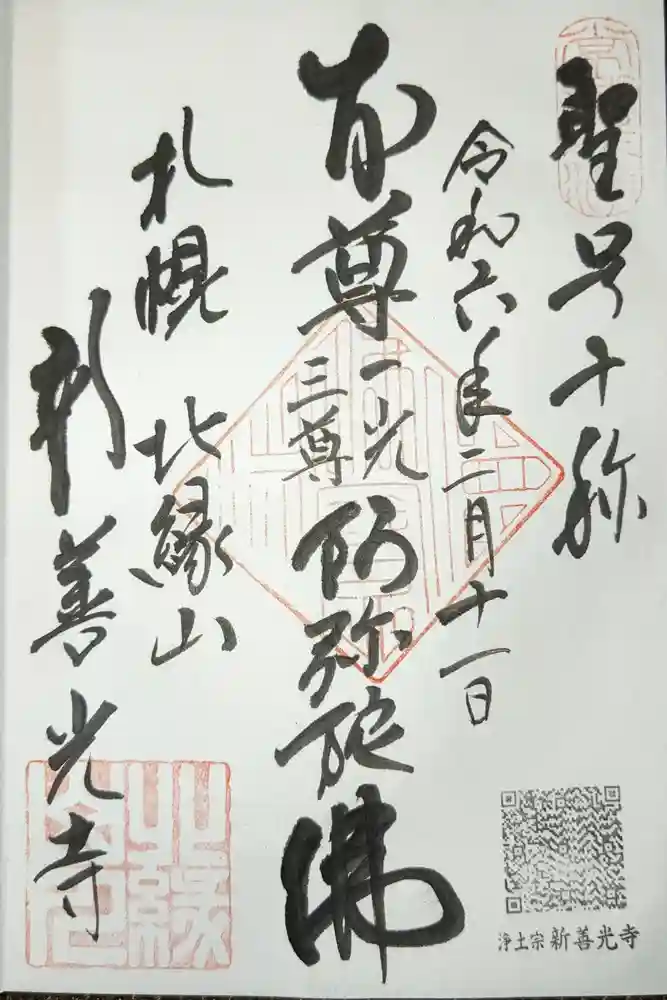 聖号十称
令和六年二月十一日
本尊 一光三尊 阿弥陀佛
札幌 北縁山
新善光寺
浄土宗 新善光寺